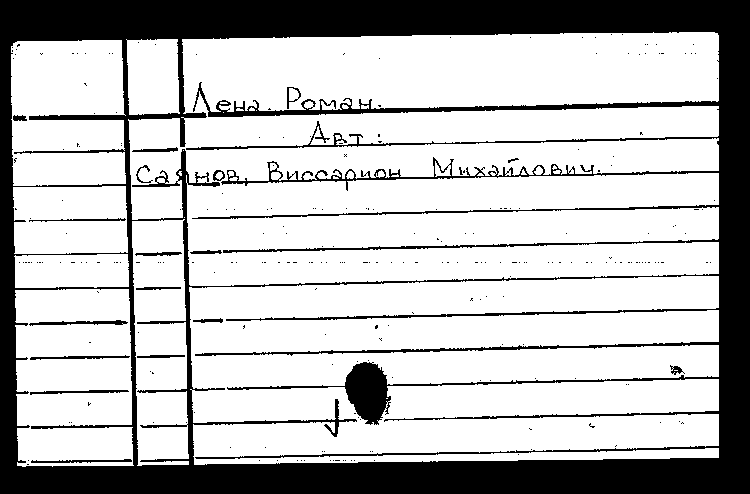 Лена. Роман.
Авт.:
Саянов, Виссарион Михайлович.